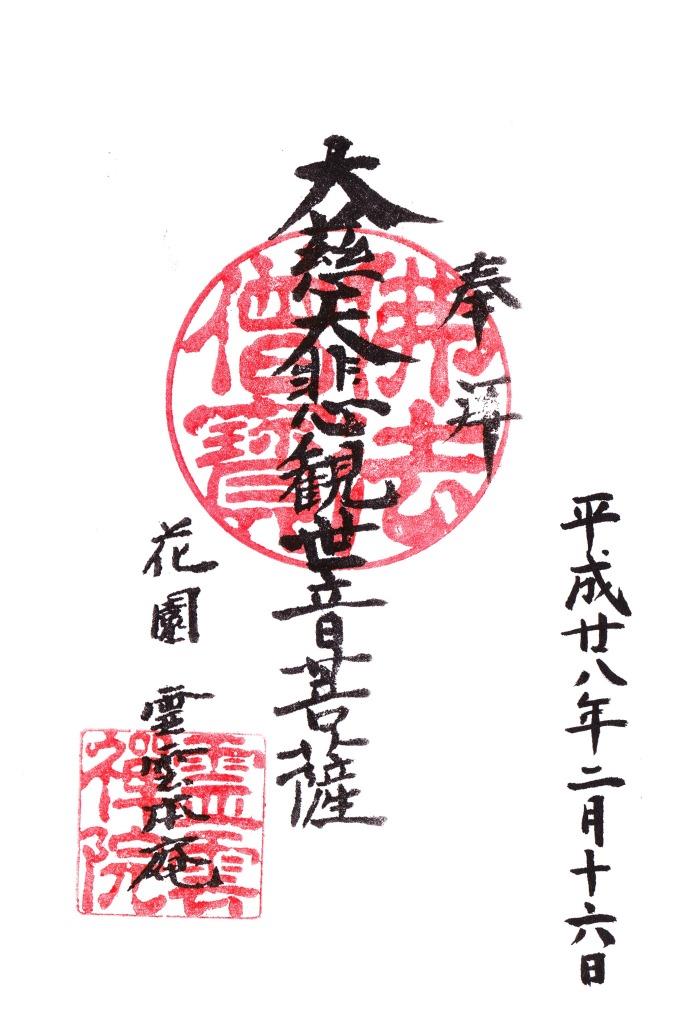 平成廿八年二月十六日
奉拝
大慈大悲観世音菩薩
花園 霊雲本庵
佛法僧寶
靈雲禪院